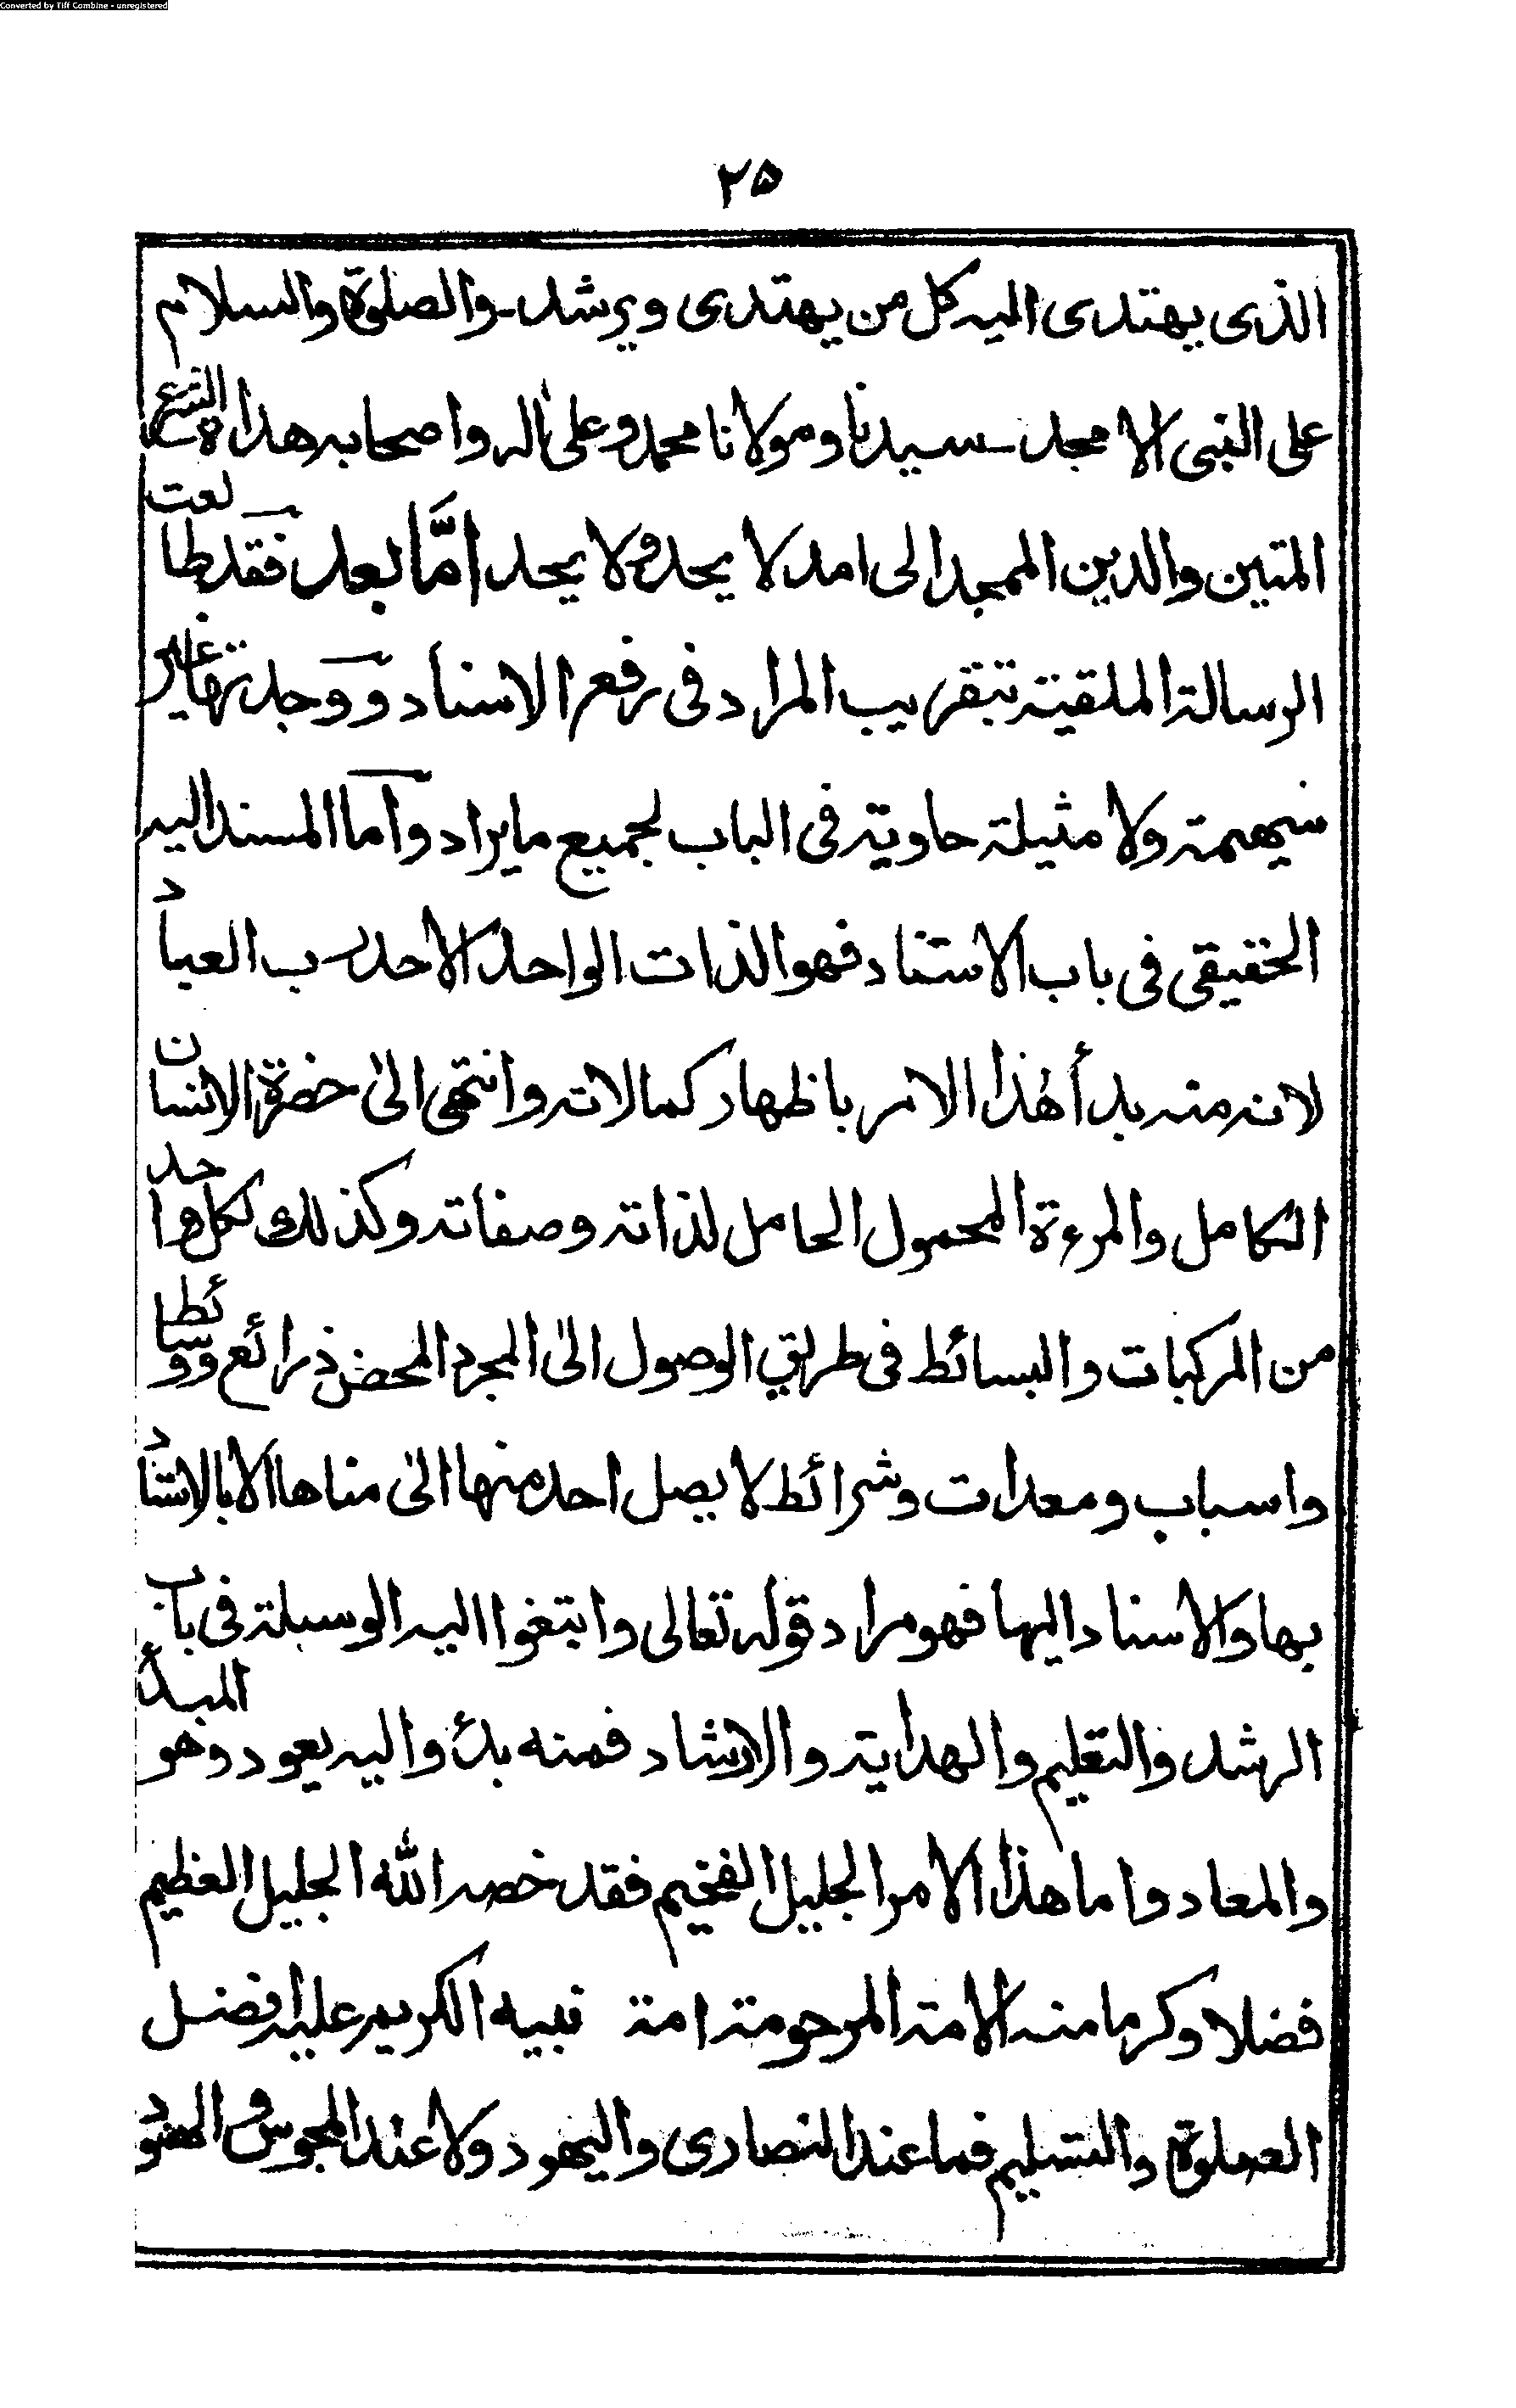 Converted by Tiff Combine - unregistered
۲۵
الذی یهتدی الیه کل من یهتدی ویرشد۔ والصلوة والسلام
علی النبی الامجد۔ سیدنا ومولانا محمد وعلیٰ اٰله واصحابه هداة الشرع
المتین والدین الممجد الی امد لا یحد ولا یحد امّا بعد فقد طالعت
الرسالة الملقیة بتقریب المراد فی رفع الاسناد ووجدتها غیر
سهیمة ولا مثیلة حاویة فی الباب لجمیع ما یراد واما المسند الیه
الحقیقی فی باب الاستناد فهو الذات الواحد الاحد رب العباد
لانه منه بدأ هٰذا الامر باظهار کمالاته وانتهی الیٰ حضرة الانسان
الکامل والمرءة المحمول الحامل لذاته وصفاته وکذلك لکل واحد
من المرکبات والبسائط فی طریق الوصول الیٰ المجرد المحض ذرائع ووسائط
واسباب ومعدات وشرائط لا یصل احد منها الیٰ مناها الا بالاستناد
بها والاسناد الیها فهو مراد قوله تعالی وابتغوا الیه الوسیلة فی باب
الرشد والتعلیم والهدایة والارشاد فمنه بدئ والیه یعود وهو المبدأ
والمعاد واما هذا الامر الجلیل الفخیم فقد خصه الله الجلیل العظیم
فضلا وکرما منه الامة المرحومة امة نبیه الکریم علیه افضل
الصلوة والتسلیم فما عند النصاری والیهود ولا عند المجوس والهنود